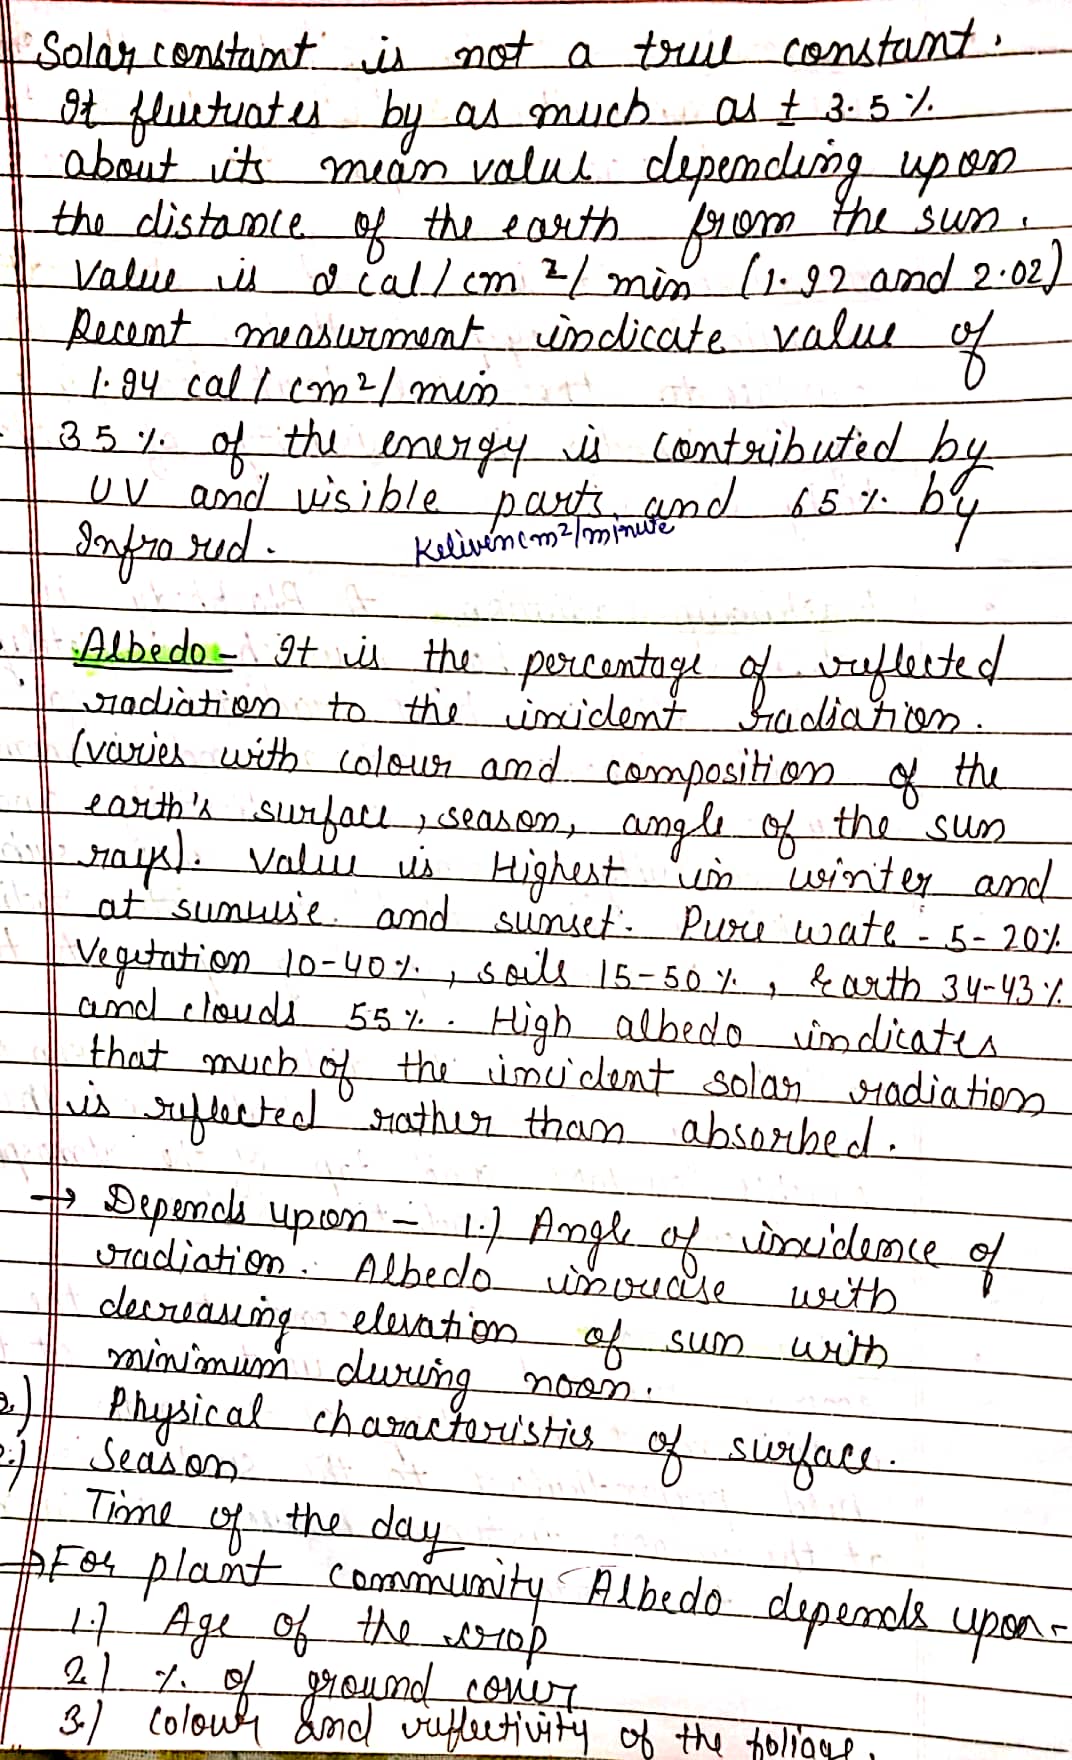 Solar constant is not a true constant.
It fluctuates by as much as ± 3.5 %
about its mean value depending upon
the distance of the earth from the sun.
Value is 2 cal / cm ²/ min (1.92 and 2.02)
Recent measurment indicate value of
1.94 cal / cm²/ min
35 %. of the energy is contributed by
UV and visible parts and 65 %. by
Infra red.
Keliven cm²/minute
Albedo - It is the percentage of reflected
radiation to the incident radiation.
(varies with colour and composition of the
earth's surface, season, angle of the sun
rays). Value is Highest in winter and
at sunrise and sunset. Pure wate - 5-20%
Vegetation 10-40%, soils 15-50 %, Earth 34-43 %
and clouds 55 %. High albedo indicates
that much of the incident solar radiation
is reflected rather than absorbed.
→ Depends upon - 1.) Angle of incidence of
radiation. Albedo increase with
decreasing elevation of sun with
minimum during noon.
2.) Physical characteristics of surface.
Season
Time of the day
⇒ For plant community Albedo depends upon -
1.) Age of the crop
2.) % of ground cover
3.) Colour and reflectivity of the foliage.